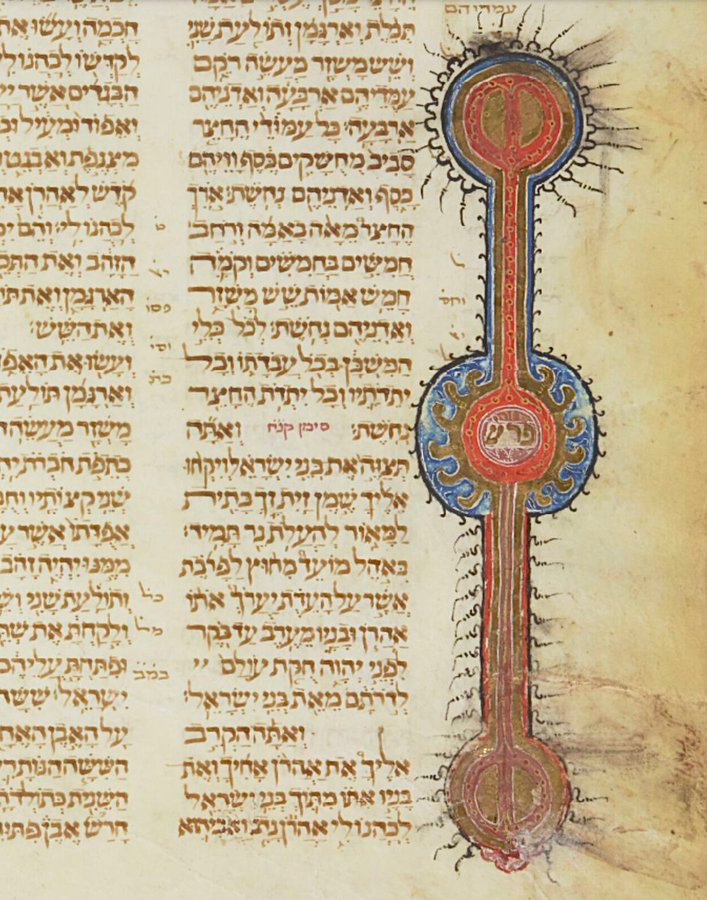 עמודיהם
תכלת וארגמן ותולעת שני
ושש משזר מעשה רקם
עמדיהם ארבעה ואדניהם
ארבעה כל עמודי החצר
סביב מחשקים כסף וויהם
כסף ואדניהם נחשת ארך
החצר מאה באמה ורחב
חמשים בחמשים וקמה
חמש אמות שש משזר
ואדניהם נחשת לכל כלי
המשכן בכל עבדתו וכל
יתדתיו וכל יתדת החצר
נחשת סימן קנח ואתה
תצוה את בני ישראל ויקחו
אליך שמן זית זך כתית
למאור להעלת נר תמיד
באהל מועד מחוץ לפרכת
אשר על העדת יערך אתו
אהרן ובניו מערב עד בקר
לפני יהוה חקת עולם
לדרתם מאת בני ישראל
ואתה הקרב
אליך את אהרן אחיך ואת
בניו אתו מתוך בני ישראל
לכהנו לי אהרן נדב ואביהוא
חכמה ועשו את
לקדשו לכהנו לי
הבגדים אשר
ואפוד ומעיל
מצנפת ואבנט
קדש לאהרן
לכהנו לי והם
הזהב ואת
הארגמן ואת
ואת השש
ועשו את
וארגמן תולעת
משזר מעשה
כתפת חברת
שני קצותיו
אפדתו אשר
ממנו יהיה זהב
ותולעת שני
ולקחת את
ופתחת עליהם
ישראל ששה
על האבן
הששה
השנית
חרש אבן